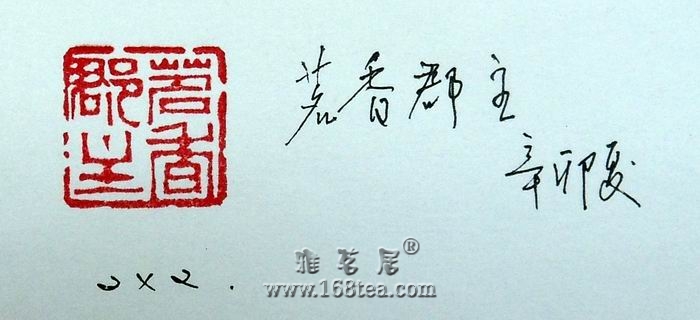 茗香
郡主
茗香郡主
辛卯夏
2×2.
雅茗居®
www.168tea.com